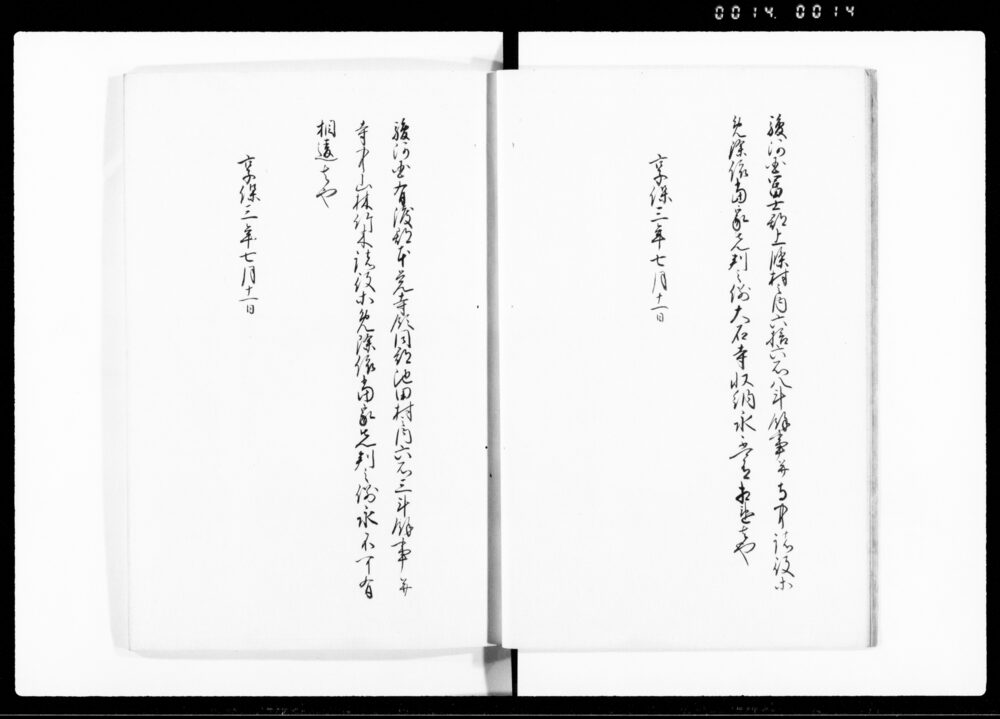 0014. 0014
駿河国富士郡上條村之内六拾六石八斗餘事并寺中諸役等
免除依当家先判之例大石寺収納永不可有相違者也
享保三年七月十一日
駿河国有渡郡本覚寺領同郡池田村之内六石三斗餘事并
寺中山林竹木諸役等免除依当家先判之例永不可有
相違者也
享保三年七月十一日